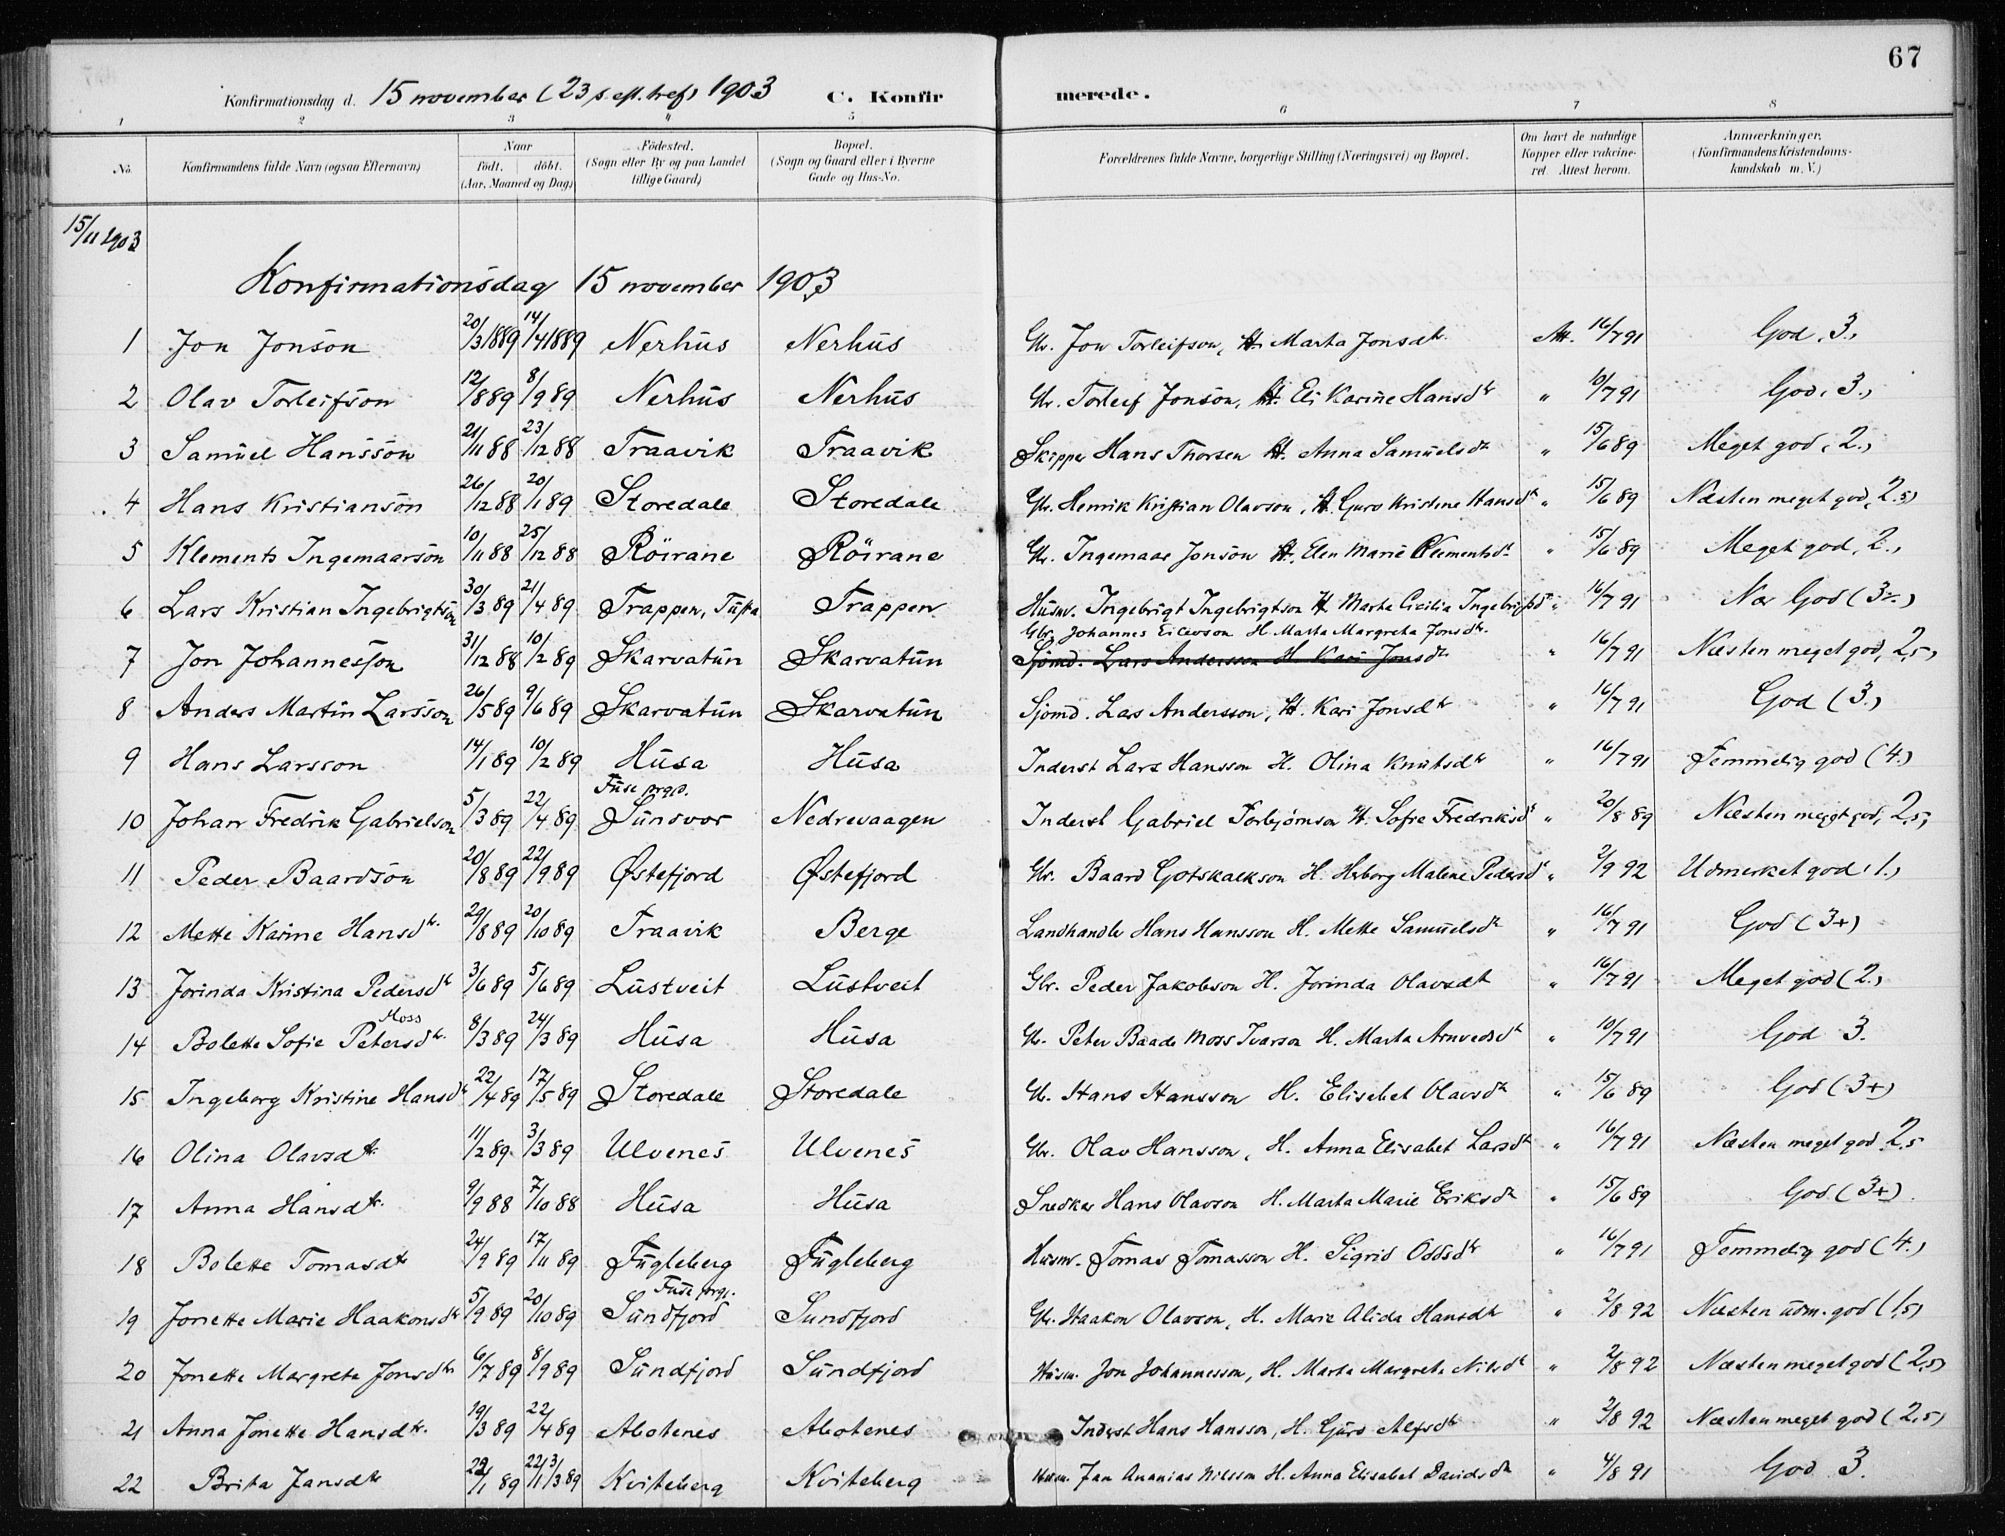 67
Konfirmationsdag d. 15 november (23 s. eft. tref) 1903 C. Konfirmerede.
1 2 3 4 5 6 7 8
No. Konfirmandens fulde Navn (ogsaa Efternavn) Naar født, døbt. (Aar, Maaned og Dag) Födested. (Sogn eller By og paa Landet tillige Gaard) Bopæl. (Sogn og Gaard eller i Byerne Gade og Hus-No. Forældrenes fulde Navne, borgerlige Stilling (Næringsvei) og Bopæl. Om havt de naturlige Kopper eller vakcineret. Attest herom. Anmærkninger. (Konfirmandens Kristendomskundskab m. V.)
15/11 1903
Konfirmationsdag 15 november 1903
1 Jon Jonson 20/3 1889 14/4 1889 Nerhus Nerhus Gbr. Jon Torleifson, H. Marta Jonsdtr. Att. 16/7 91 God, 3.,
2 Olav Torleifson 12/8 89 8/9 89 Nerhus Nerhus Gbr. Torleif Jonson, H. Eli Karine Hansdtr " 10/7 91 God, 3.,
3 Samuel Hansson 21/11 88 23/12 88 Traavik Traavik Skipper Hans Thorsen H. Anna Samuelsdtr " 15/6 89 Meget god, 2.,
4 Hans Kristianson 26/12 88 20/1 89 Storedale Storedale Gbr. Henrik Kristian Olavson, H. Guro Kristine Hansdtr " 15/6 89 Næsten meget god, 2.5)
5 Klements Ingemaarson 10/11 88 25/12 88 Röirane Röirane Gbr. Ingemaar Jonson H. Elen Marie Klementsdtr " 15/6 89 Meget god, 2.,
6 Lars Kristian Ingebrigtson 30/3 89 21/4 89 Trappen, Trappen Husm. Ingebrigt Ingebrigtson H. Marta Cicilia Ingebrigtsdtr " 16/7 91 Nær God (3÷)
Gbr. Johannes Ericsson H. Marta Margreta Jonsdtr.
7 Jon Johannesson 31/12 88 10/2 89 Skarvatun Skarvatun Sjömd. Lars Andersson H Kari Jonsdtr " 16/7 91 Næsten meget god, 2,5,
8 Anders Martin Larsson 26/5 89 9/6 89 Skarvatun Skarvatun Sjömd. Lars Andersson, H. Kari Jonsdtr " 16/7 91 God (3.)
9 Hans Larsson 14/1 89 10/2 89 Husa Husa Inderst Lars Hansson H. Olina Knutsdtr " 16/7 91 Temmelig god (4.)
Fuse prgd.
10 Johan Fredrik Gabrielson 5/3 89 22/4 89 Sunsvor Nedrevaagen Inderst Gabriel Torbjörnson H. Sofie Fredriksdtr " 20/8 89 Næsten meget god, 2,5,
11 Peder Baardson 20/8 89 22/9 89 Østefjord Østefjord Gbr. Baard Gotskalkson H. Herborg Malene Pedersdtr " 2/9 92 Udmerket god (1.)
12 Mette Karine Hansdtr. 29/8 89 20/10 89 Traavik Berge Landhandler Hans Hansson H. Mette Samuelsdtr " 16/7 91 God (3+)
13 Jorinda Kristina Pedersdtr 3/6 89 5/6 89 Lustveit Lustveit Gbr. Peder Jakobson H. Jorinda Olavsdtr " 16/7 91 Meget god (2.)
Moss
14 Bolette Sofie Petersdtr. 8/3 89 24/3 89 Husa Husa Gbr. Peter Baade Moss Ivarson H. Marta Arnvedsdtr " 10/7 91 God 3.
15 Ingeborg Kristine Hansdtr 22/4 89 17/5 89 Storedale Storedale Gbr. Hans Hansson H. Elisabet Olavsdtr " 15/6 89 God (3+)
16 Olina Olavsdtr. 11/2 89 3/3 89 Ulvenes Ulvenes Gbr. Olav Hansson, H. Anna Elisabet Larsdtr " 16/7 91 Næsten meget god 2.5
17 Anna Hansdtr. 9/9 88 7/10 88 Husa Husa Snedker Hans Olavson H. Marta Marie Eriksdtr " 15/6 89 God (3+)
18 Bolette Tomasdtr 24/9 89 17/11 89 Fugleberg Fugleberg Husm. Tomas Tomasson H. Sigrid Oddsdtr " 16/7 91 Temmelig god (4.)
Fuse prgd.
19 Jonette Marie Haakonsdtr 5/9 89 20/10 89 Sundfjord Sundfjord Gbr. Haakon Olavson, H. Marie Alida Hansdtr " 2/8 92 Næsten udm. god (1,5)
20 Jonette Margreta Jonsdtr 6/7 89 8/9 89 Sundfjord Sundfjord Husm. Jon Johannesson, H. Marta Margreta Nilsdtr " 2/8 92 Næsten meget god (2,5)
21 Anna Jonette Hansdtr. 19/3 89 22/4 89 Abotenes Abotenes Inderst Hans Hansson, H. Guro Alfsdtr " 2/8 92 Næsten meget god (2,5)
22 Brita Jansdtr /1 89 3/3 89 Kviteberg Kviteberg Husm. Jan Ananias Nilsson H. Anna Elisabet Davidsdtr " 4/8 91 God 3.